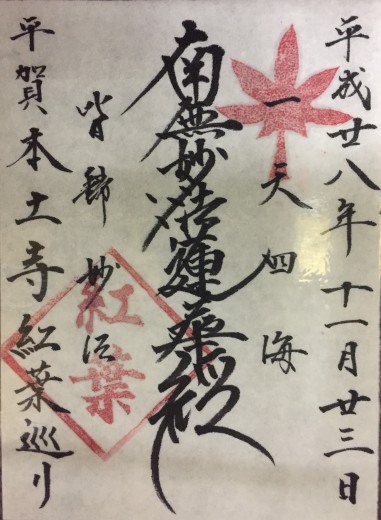 平成廿八年十一月廿三日
一天四海
南無妙法蓮華経
皆歸妙法
平賀本土寺紅葉巡り
紅葉